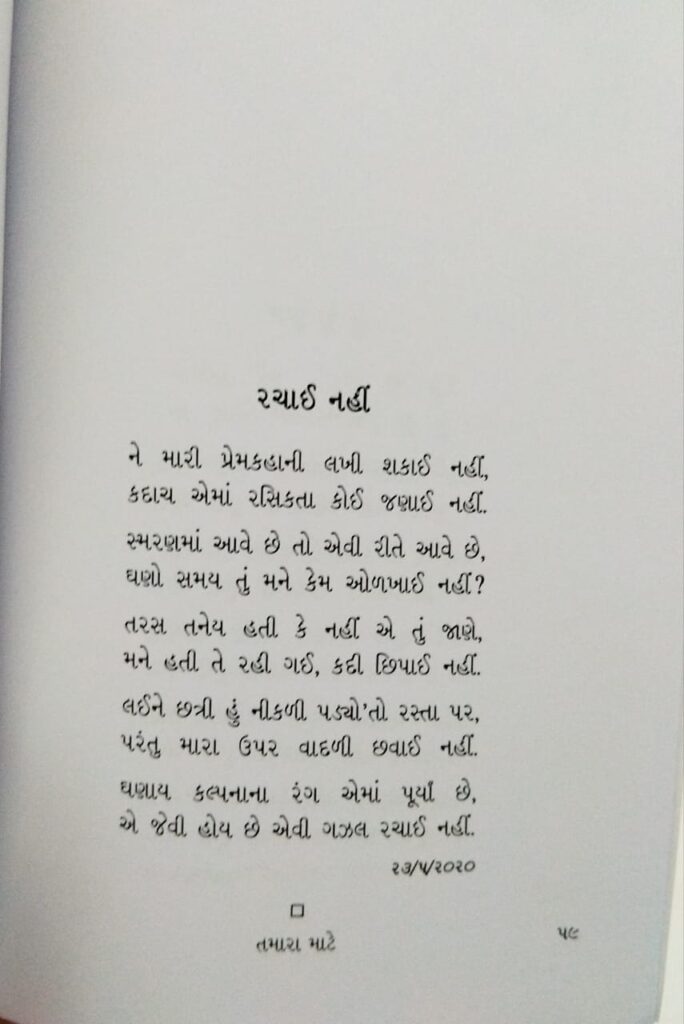 રચાઈ નહીં
ને મારી પ્રેમકહાની લખી શકાઈ નહીં,
કદાચ એમાં રસિકતા કોઈ જણાઈ નહીં.
સ્મરણમાં આવે છે તો એવી રીતે આવે છે,
ઘણો સમય તું મને કેમ ઓળખાઈ નહીં?
તરસ તનેય હતી કે નહીં એ તું જાણે,
મને હતી તે રહી ગઈ, કદી છિપાઈ નહીં.
લઈને છત્રી હું નીકળી પડ્યો'તો રસ્તા પર,
પરંતુ મારા ઉપર વાદળી છવાઈ નહીં.
ઘણાય કલ્પનાના રંગ એમાં પૂર્યાં છે,
એ જેવી હોય છે એવી ગઝલ રચાઈ નહીં.
૨૩/૫/૨૦૨૦
તમારા માટે
૫૯